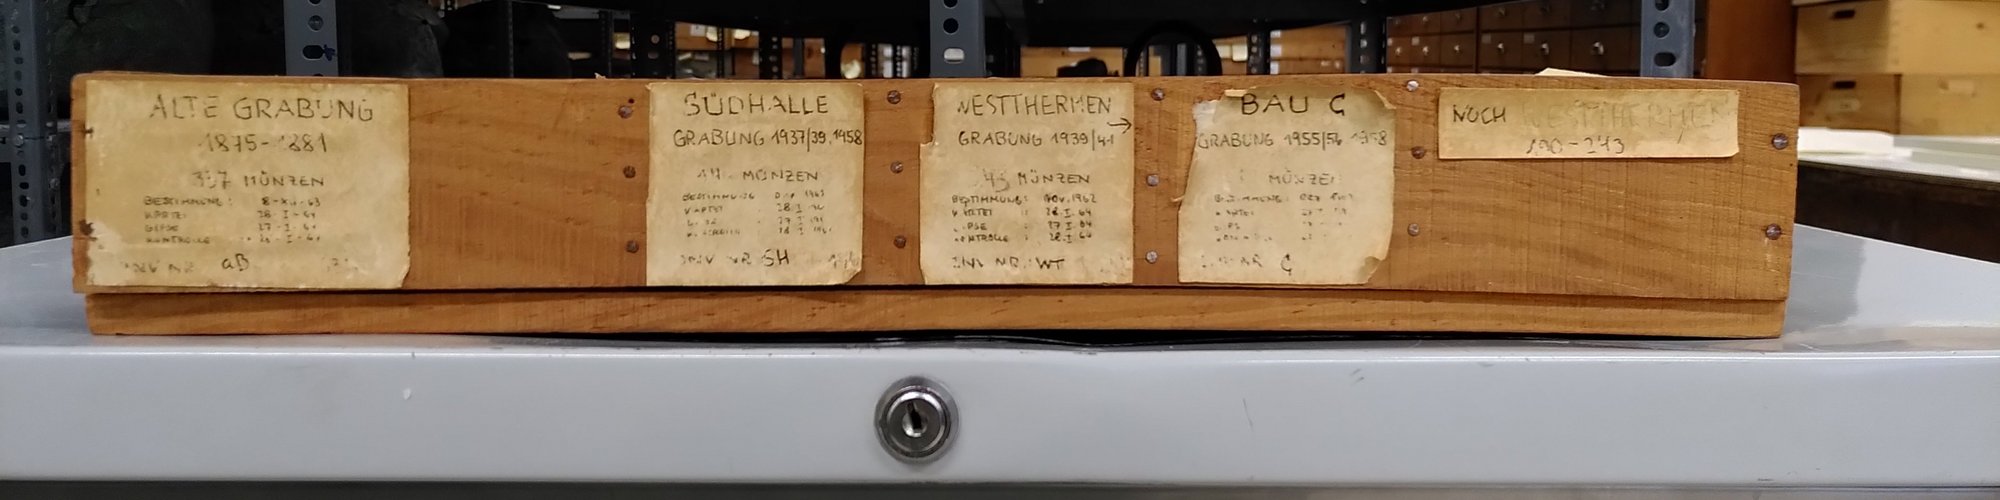 ALTE GRABUNG
1875-1881
337 MÜNZEN
BESTIMMUNG: 8-XII-63
KARTEI 28-I-64
GIPSE 27-I-64
KONTROLLE 28-I-64
INV NR aB
SÜDHALLE
GRABUNG 1937/39, 1958
MÜNZEN
BESTIMMUNG 1963
KARTEI 28.I
INV NR SH
WESTTHERMEN
→
GRABUNG 1939/41
43 MÜNZEN
BESTIMMUNG: NOV. 1962
KARTEI 28.I.64
GIPSE 27.I.64
KONTROLLE 28.I.64
INV NR.: WT
BAU C
GRABUNG 1955/56 1958
MÜNZEN
BESTIMMUNG:
INV NR C
NOCH WESTTHERMEN
190-243